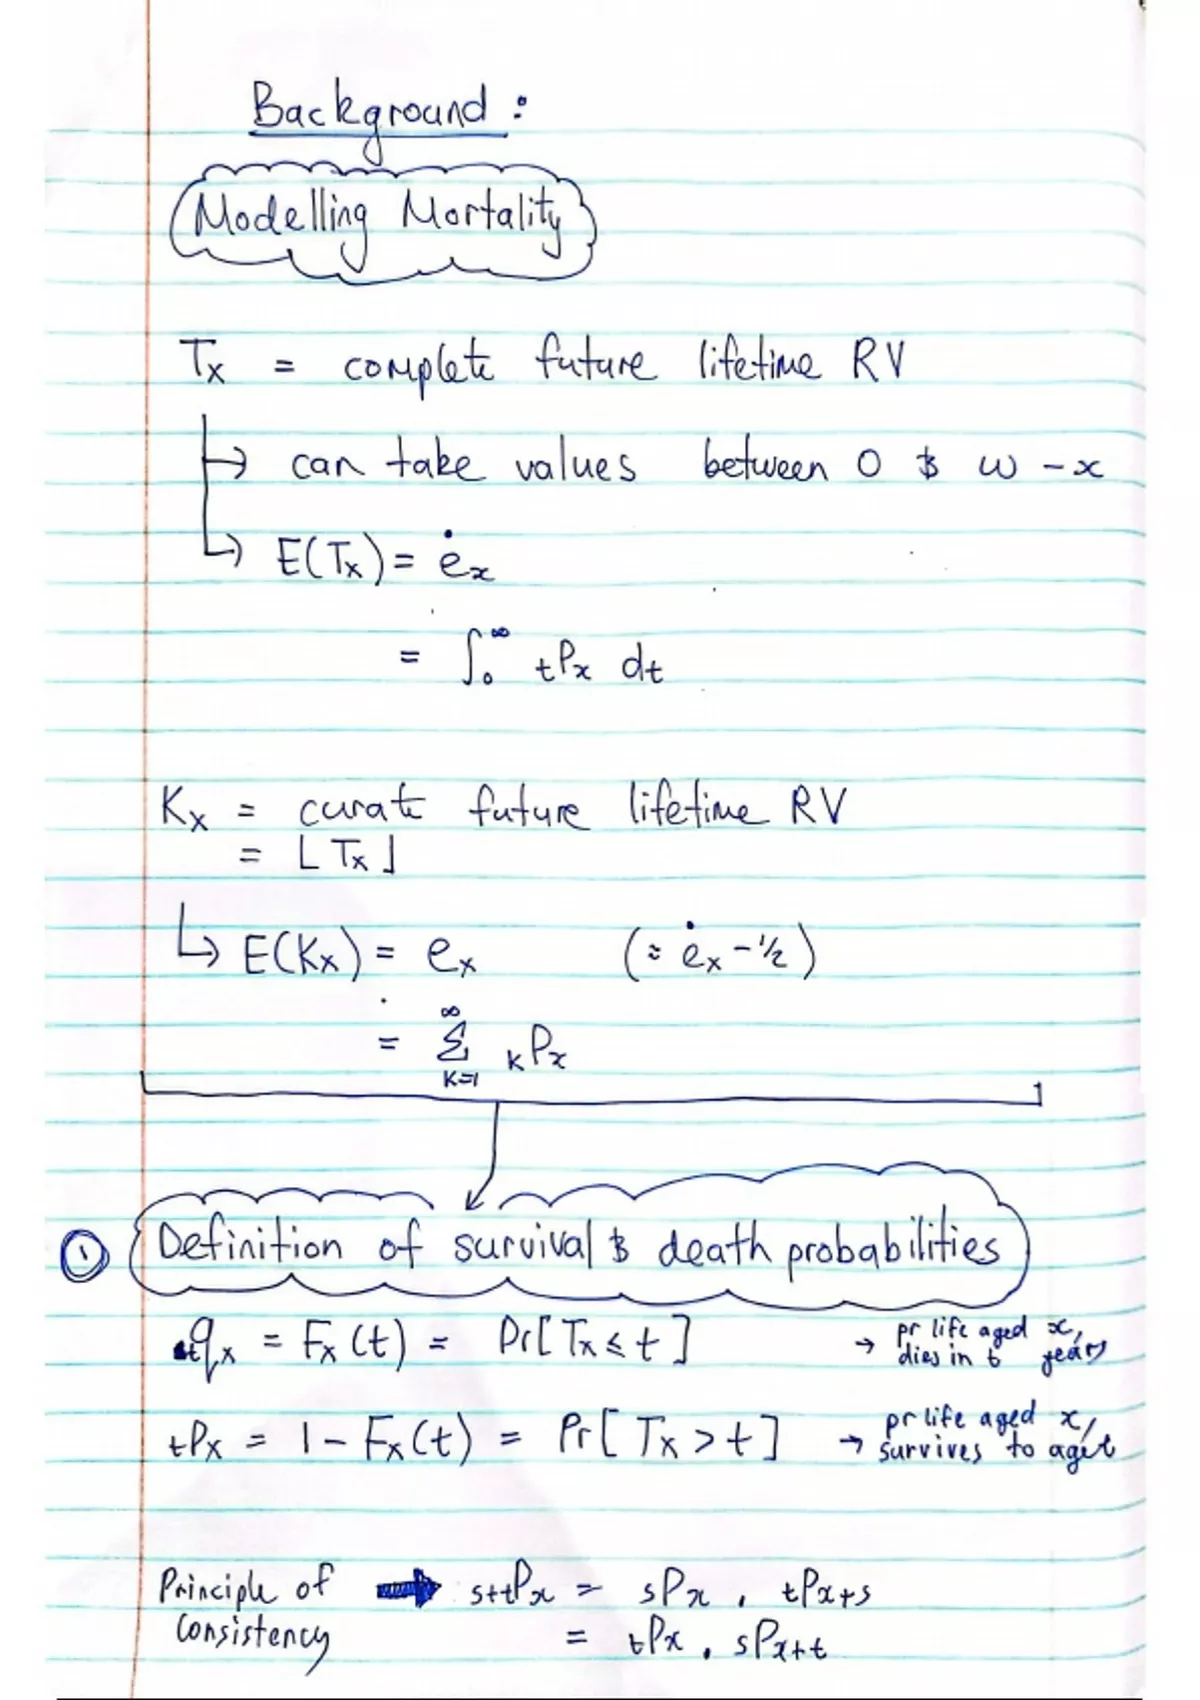 Background :
Modelling Mortality
Tx = complete future lifetime RV
↳ can take values between 0 & ω - x
↳ E(Tx) = ėx
= ∫₀^∞ tPx dt
Kx = curate future lifetime RV
= ⌊Tx⌋
↳ E(Kx) = ex (≈ ėx - 1/2)
= Σ_{K=1}^∞ KPx
① Definition of survival & death probabilities
tqx = Fx(t) = Pr[Tx ≤ t] → pr life aged x, dies in t years
tPx = 1 - Fx(t) = Pr[Tx > t] → pr life aged x, survives to age t
Principle of Consistency → s+tPx = sPx . tPx+s
= tPx . sPx+t